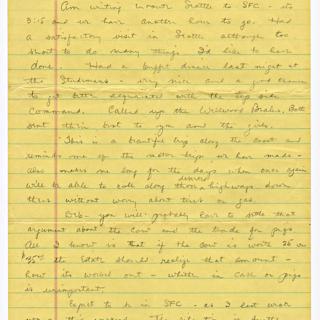 Am writing enroute Seattle to SFC - its
3:15 and we have another hour to go. Had
a satisfactory visit in Seattle although too
short to do many things I'd like to have
done. Had a buffet dinner last night at
the - very nice and a good chance
to get better acquainted with the top side
Command. Called up the Bealis, Both
sent their best to you and the girls.
This is a beautiful trip along the coast and
reminds me of the motor trips we have made -
also makes me long for the days when once again
will be able to roll along those highways down
there without worry about tires or gas.
Deb - you will probably have to settle that
argument about the cow and the trade for pigs
All I know is that if the cow is worth 35 or
$45.00 the should realize that amount -
how its worked out - whether in cash or pigs
is unimportant.
Expect to be in SFC - as I last wrote